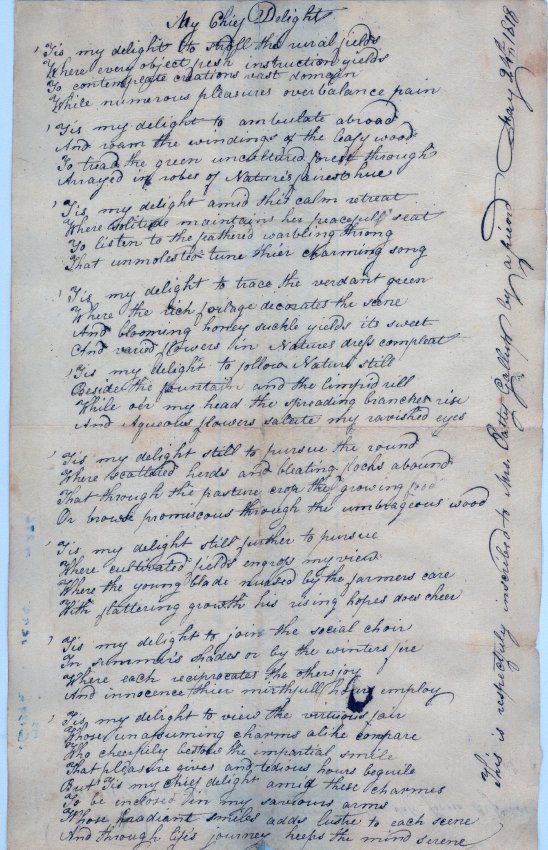 My Chief Delight
'Tis my delight to stroll the rural fields
Where every object fresh instruction yields
To contemplate creations vast domain
While numerous pleasures overbalance pain
'Tis my delight to ambulate abroad
And roam the windings of the leafy wood
To tread the green uncultured forest through
Arrayed in robes of Nature's fairest hue
'Tis my delight amid this calm retreat
Where solitude maintains her peacefull seat
To listen to the feathered warbling throng
That unmolested tune thier charming song
'Tis my delight to trace the verdant green
Where the rich foilage decorates the scene
And blooming honey suckle yields its sweet
And varied flowers in Natures dress compleat
'Tis my delight to follow Nature still
Beside the fountain and the limpid rill
While o'er my head the spreading branches rise
And Aqueous flowers salute my ravished eyes
'Tis my delight still to pursue the round
Where scattered herds and bleating flocks abound
That through the pasture crop the growing food
Or browse promiscous through the umbrageous wood
'Tis my delight still further to pursue
Where cultivated fields engross my view
Where the young blade nursed by the farmers care
With flattering growth his rising hopes does cheer
'Tis my delight to join the social choir
In summer's shades or by the winters fire
Where each reciprocates the others joy
And innocence thier mirthfull hours imploy
'Tis my delight to view the virtuous fair
Whose unassuming charms alike compare
Who cheerfully bestow the impartial smile
That pleasure gives and tedious hours beguile
But 'Tis my chief delight amid these charmes
To be inclosed in my saviours arms
Whose radiant smiles adds lustre to each scene
And through life's journey keeps the mind serene
This is respectfuly inscribed to Mrs. Patty by a friend May 24th 1818